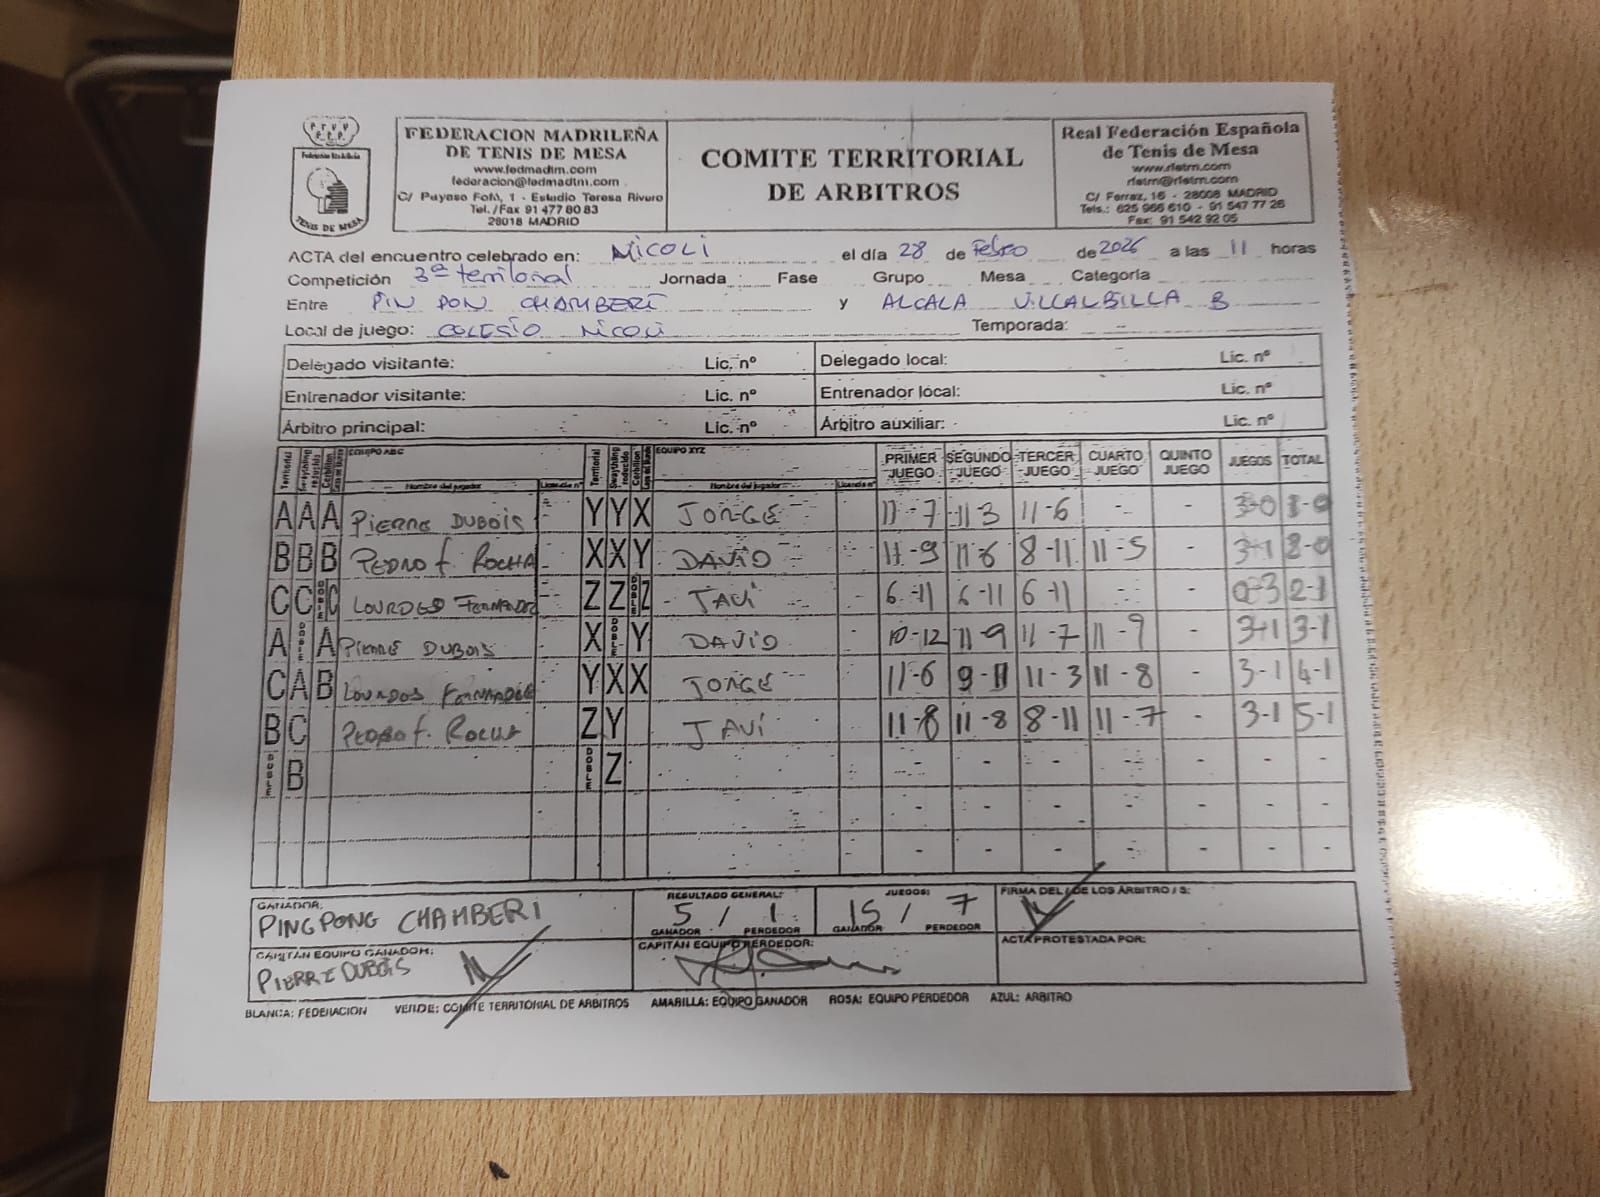 FEDERACION MADRILEÑA
DE TENIS DE MESA
www.fedmadtm.com
federacion@fedmadtm.com
C/ Payaso Fofó, 1 - Estadio Teresa Rivero
Tel./Fax 91 477 80 83
28018 MADRID
TENIS DE MESA
COMITE TERRITORIAL
DE ARBITROS
Real Federación Española
de Tenis de Mesa
www.rfetm.com
rfetm@rfetm.com
C/ Ferraz, 16 - 28008 MADRID
Tels.: 625 966 610 - 91 547 77 26
Fax: 91 542 92 05
ACTA del encuentro celebrado en: NICOLI el día 28 de Febrero de 2026 a las 11 horas
Competición 3ª territorial Jornada Fase Grupo Mesa Categoría
Entre PIN PON CHAMBERÍ y ALCALA VILLALBILLA B
Local de juego: COLEGIO NICOLI Temporada:
Delegado visitante: Lic. nº Delegado local: Lic. nº
Entrenador visitante: Lic. nº Entrenador local: Lic. nº
Árbitro principal: Lic. nº Árbitro auxiliar: Lic. nº
Territorial EQUIPO ABC Nombre del jugador Licencia nº Territorial EQUIPO XYZ Nombre del jugador Licencia nº PRIMER JUEGO SEGUNDO JUEGO TERCER JUEGO CUARTO JUEGO QUINTO JUEGO JUEGOS TOTAL
A A A PIERRE DUBOIS Y Y X JORGE 11-7 11-3 11-6 - - 3-0 1-0
B B B PEDRO F. ROCHA X X Y DAVID 11-9 11-6 8-11 11-5 - 3-1 2-0
C C DOBLE C LOURDES FERNANDEZ Z Z DOBLE Z JAVI 6-11 6-11 6-11 - - 0-3 2-1
A DOBLE A PIERRE DUBOIS X DOBLE Y DAVID 10-12 11-9 11-7 11-9 - 3-1 3-1
C A B LOURDES FERNANDEZ Y X X JORGE 11-6 9-11 11-3 11-8 - 3-1 4-1
B C PEDRO F. ROCHA Z Y JAVI 11-8 11-8 8-11 11-7 - 3-1 5-1
DOBLE B DOBLE Z - - - - - - -
- - - - - - -
- - - - - - -
GANADOR: PINGPONG CHAMBERI
RESULTADO GENERAL: 5 / 1
GANADOR PERDEDOR
JUEGOS: 15 / 7
GANADOR PERDEDOR
FIRMA DEL / DE LOS ARBITRO / S:
CAPITAN EQUIPO GANADOR: PIERRE DUBOIS
CAPITAN EQUIPO PERDEDOR:
ACTA PROTESTADA POR:
BLANCA: FEDERACION VERDE: COMITE TERRITORIAL DE ARBITROS AMARILLA: EQUIPO GANADOR ROSA: EQUIPO PERDEDOR AZUL: ARBITRO